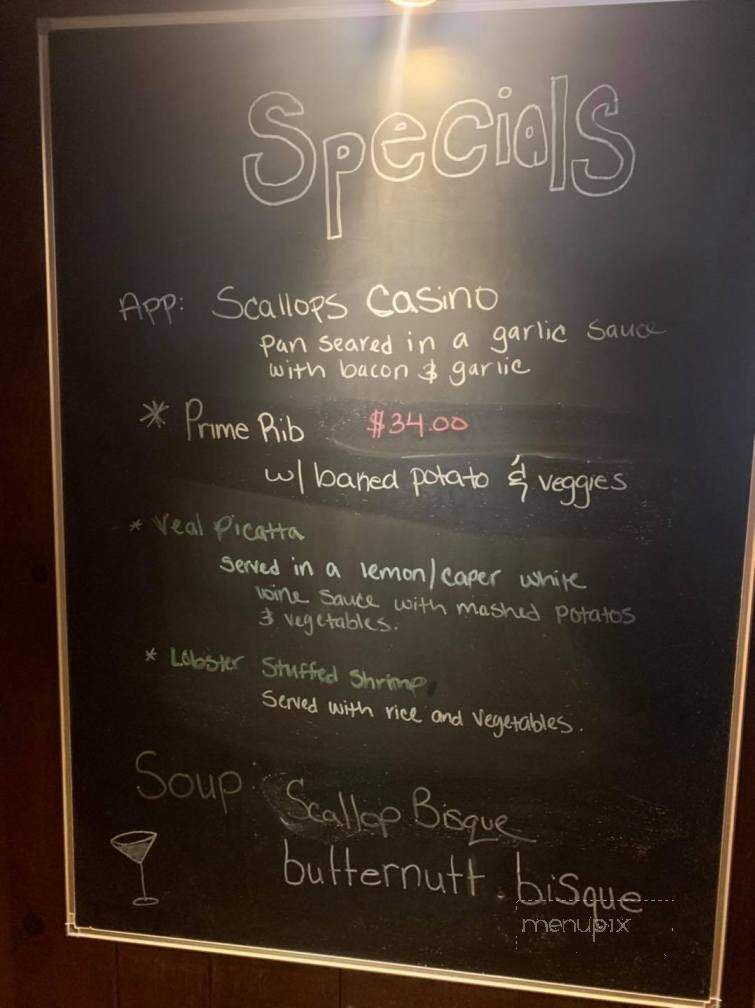 Specials
App: Scallops Casino
pan seared in a garlic sauce
with bacon & garlic
* Prime Rib $34.00
w/ baked potato & veggies
* Veal Picatta
Served in a lemon/caper white
wine sauce with mashed potatos
& vegetables.
* Lobster Stuffed Shrimp
Served with rice and vegetables.
Soup: Scallop Bisque
butternutt bisque
menupix